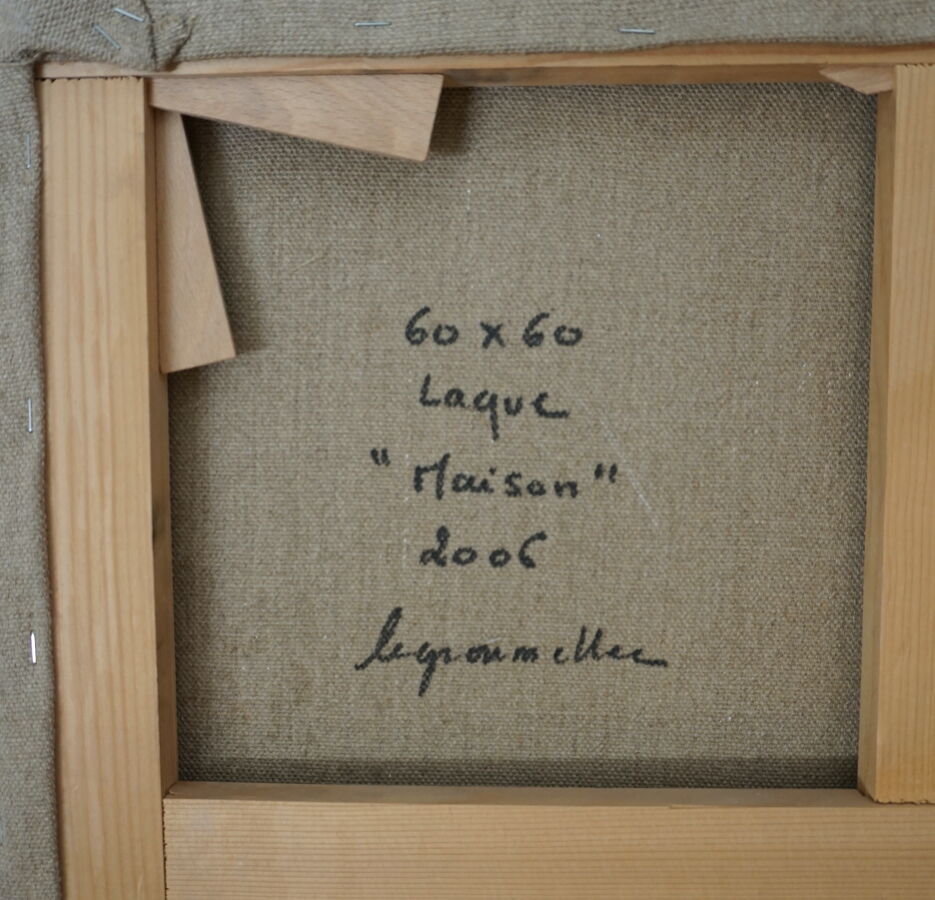 60 x 60
Laque
"Maison"
2006
legroumellec